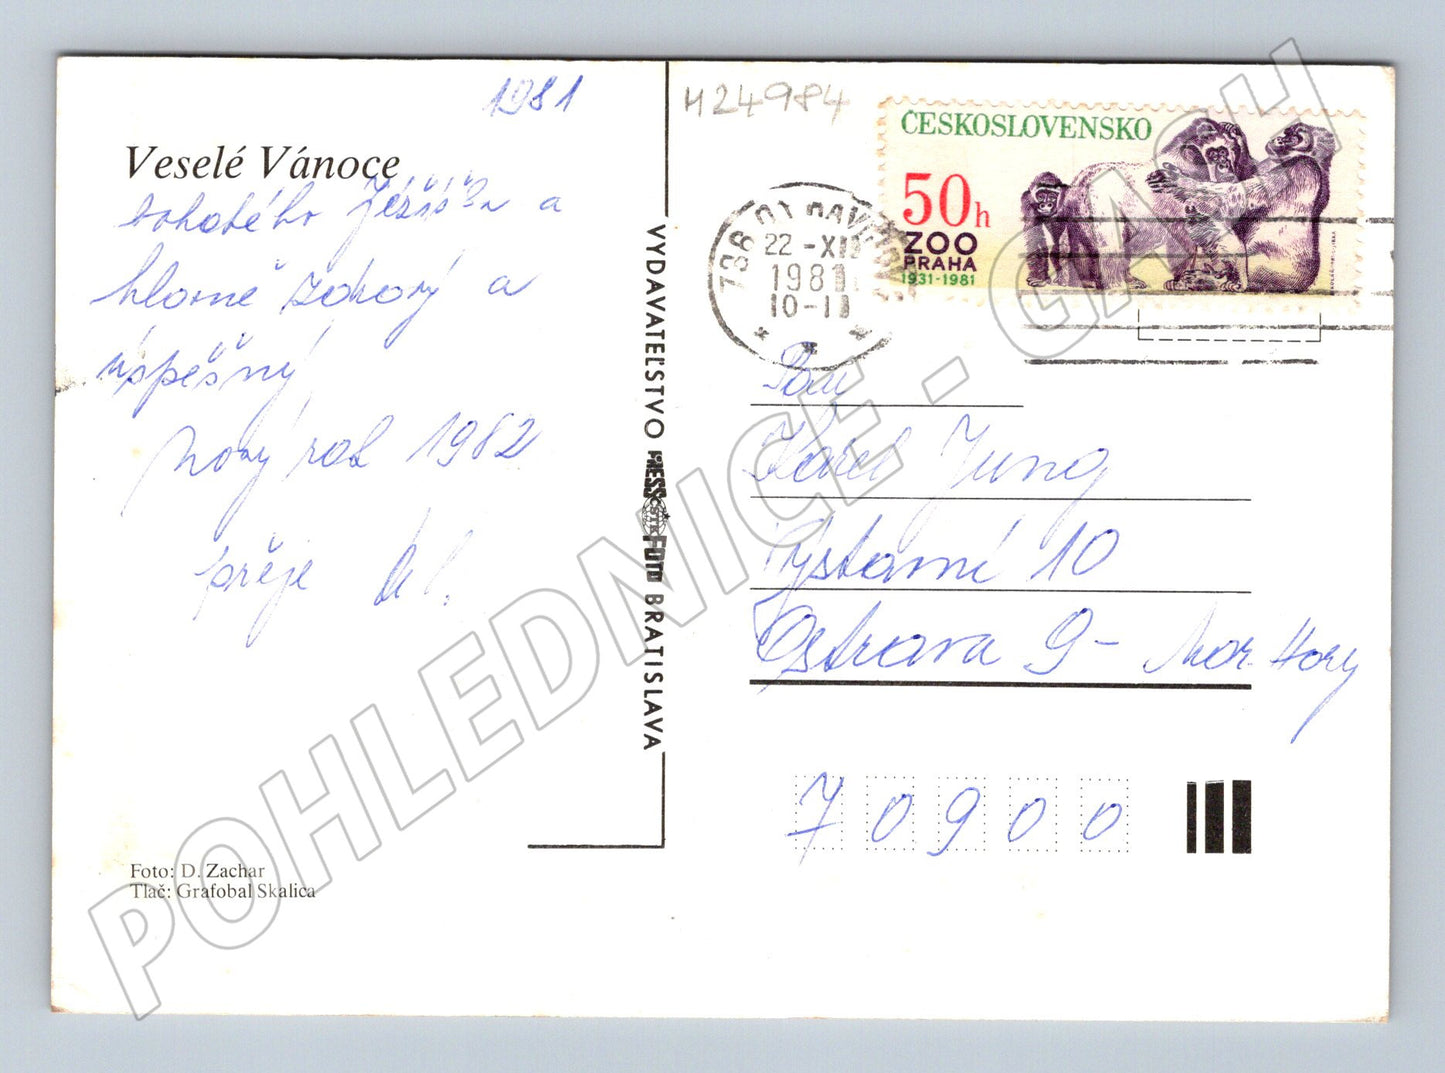 1981
Veselé Vánoce
bohatého Ježíška a
hlavně zdravý a
úspěšný
nový rok 1982
přeje
Foto: D. Zachar
Tlač: Grafobal Skalica
VYDAVATEĽSTVO PRESSFOTO BRATISLAVA
ČSTK
M24984
ČESKOSLOVENSKO
50h
ZOO
PRAHA
1931-1981
736 01 HAVÍŘOV 1
22.-XII
1981
10-11
Pan
Karel Jung
Výstavní 10
Ostrava 9 - Mar. Hory
70900
POHLEDNICE - GASH